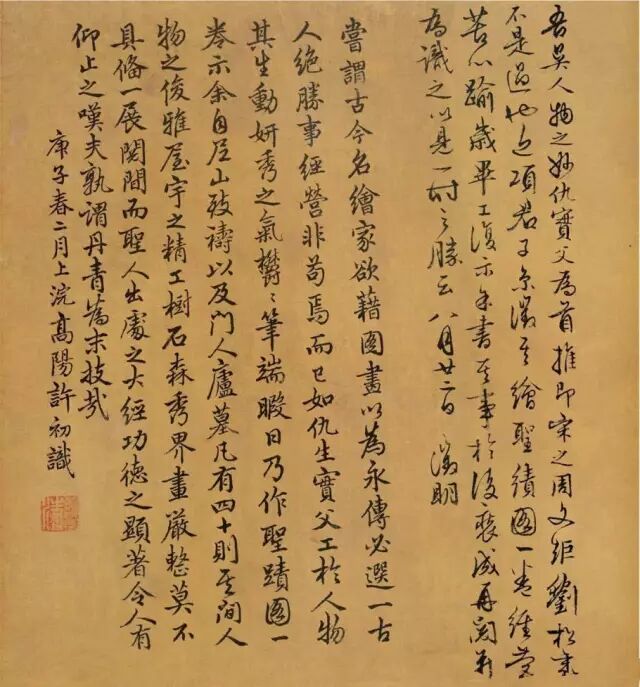 吾吳人物之妙仇實父為首推即宋之周文矩劉松年
不是過也近項君子京徵其繪聖績圖一卷經營
苦心踰歲畢工復示余書其事於後裝成再閱
為識之以見一時之勝云八月廿二日 徵明
嘗謂古今名繪家欲藉圖畫以為永傳必選一古
人絕勝事經營非苟焉而已如仇生實父工於人物
其生動妍秀之氣鬱〻筆端暇日乃作聖蹟圖一
卷示余自尼山致禱以及門人廬墓凡有四十則其間人
物之俊雅屋宇之精工樹石森秀界畫嚴整莫不
具備一展閱間而聖人出處之大經功德之顯著令人有
仰止之嘆夫孰謂丹青為末技哉
庚子春二月上浣高陽許初識